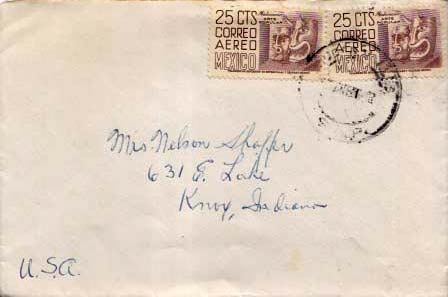 25 CTS 25 CTS
CORREO CORREO
AEREO AEREO
MEXICO MEXICO
Mrs. Nelson Shaffer
631 E. Lake
Knox, Indiana
U.S.A.